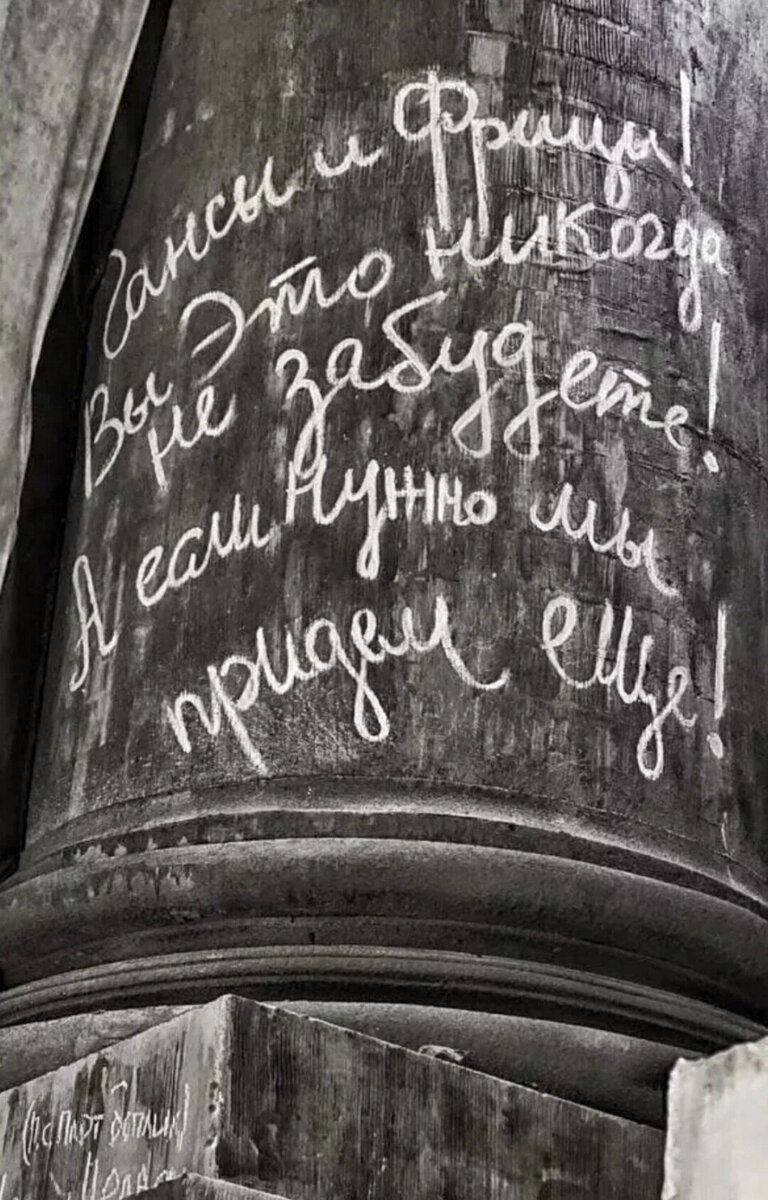 Гансы и Фрицы!
Вы Это никогда
не забудете!
А если нужно мы
придем еще!